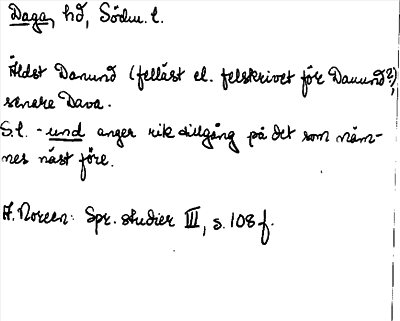 Daga, hd, Södm. l.
Äldst Danund (felläst el. felskrivet för Dauund?),
senare Dava.
S.l. -und anger rik tillgång på det som näm-
nes näst före.
A. Noreen: Spr. studier III, s. 108 f.